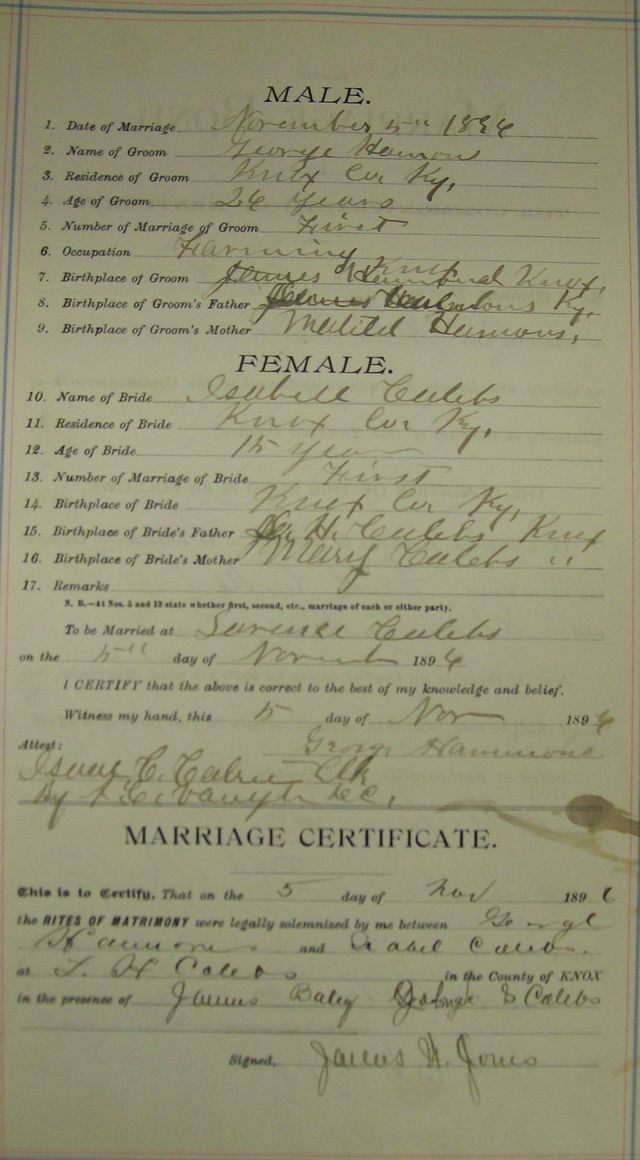 MALE.
1. Date of Marriage November 5" 1896
2. Name of Groom George Hamons
3. Residence of Groom Knox Co Ky,
4. Age of Groom 26 years
5. Number of Marriage of Groom First
6. Occupation Farming
7. Birthplace of Groom James Knox,
8. Birthplace of Groom's Father Ky,
9. Birthplace of Groom's Mother Hamons,
FEMALE.
10. Name of Bride Isabell Calebs
11. Residence of Bride Knox Co Ky,
12. Age of Bride 15 year
13. Number of Marriage of Bride First
14. Birthplace of Bride Knox Co Ky,
15. Birthplace of Bride's Father H. Calebs Knox
16. Birthplace of Bride's Mother Mary Calebs "
17. Remarks
N. B.—At Nos. 5 and 13 state whether first, second, etc., marriage of each or either party.
To be Married at Calebs
on the 5" day of Novemb 1896
I CERTIFY that the above is correct to the best of my knowledge and belief.
Witness my hand, this 5 day of Nov 1896
George Hammons
Attest:
Isaac C. Clk
By D.C.,
MARRIAGE CERTIFICATE.
This is to Certify, That on the 5 day of Nov 1896
the RITES OF MATRIMONY were legally solemnized by me between George
Hamons and Isabel Calebs.
at L H Calebs in the County of KNOX
in the presence of James Baley George E Calebs
Signed, James H. Jones